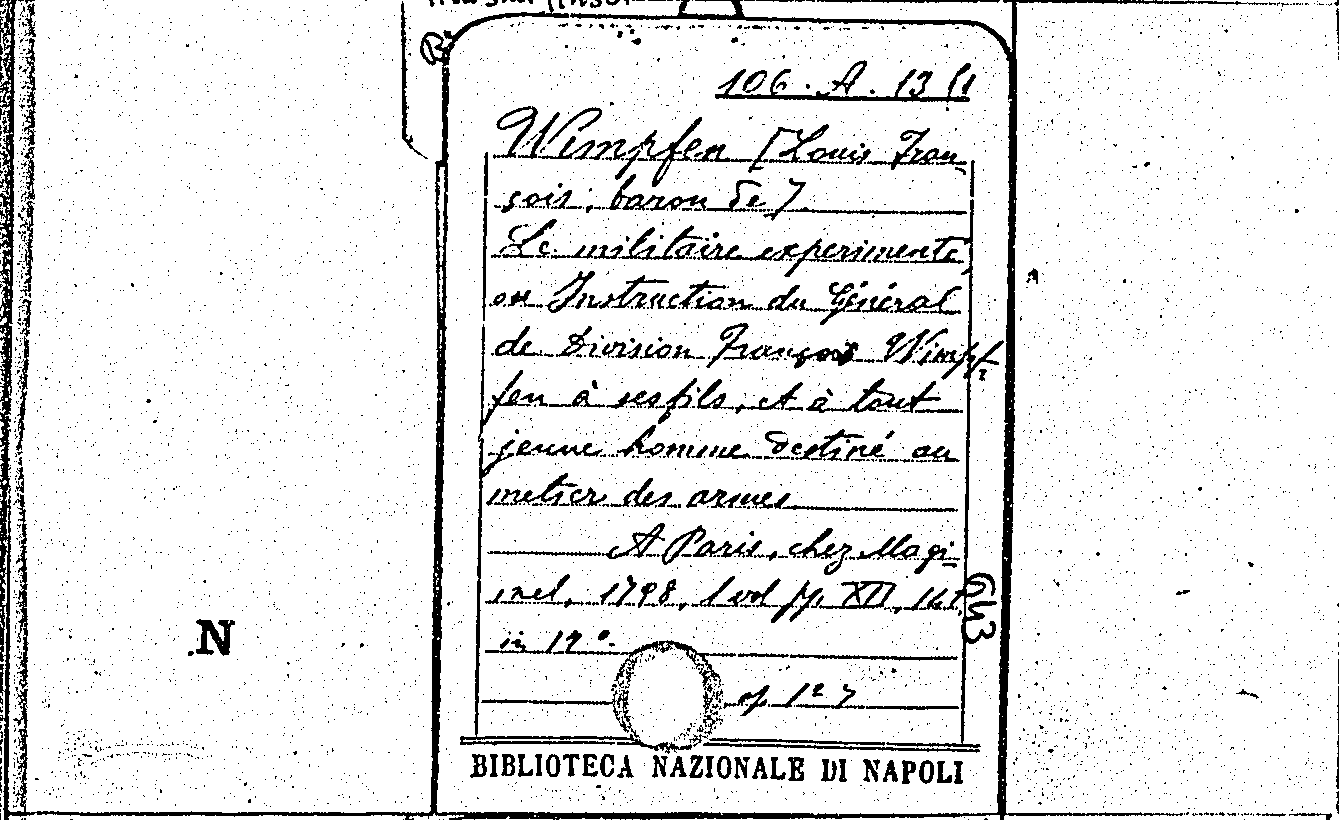 106 . A . 13 (1
Wimpfen [Louis Fran-
çois, baron de].
Le militaire experimenté,
ou Instruction du Général
de Division François Wimpf-
fen à ses fils, et à tout
jeune homme destiné au
metier des armes
A Paris, chez Magi-
mel, 1798, 1 vol pp. XII,
in 12°.
643
N
BIBLIOTECA NAZIONALE DI NAPOLI